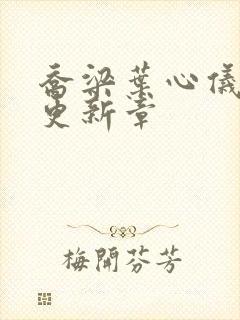 乔梁葉心儀
更新章
梅開芬芳